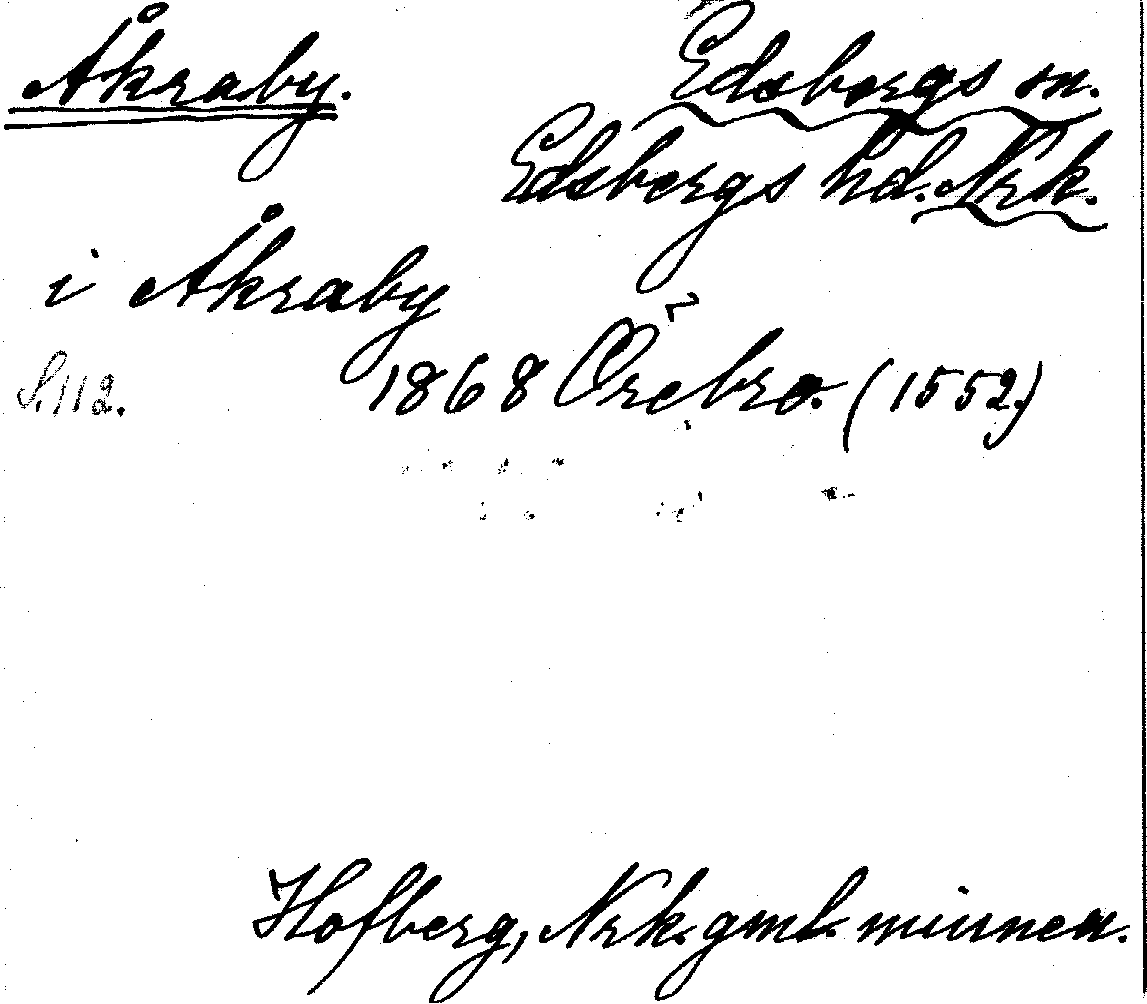 Åkraby. Edsbergs sn.
Edsbergs hd. Nrk.
i Åkraby
S. 112. 1868 Örebro. (1552.)
Hofberg, Nrk. gml. minnen.